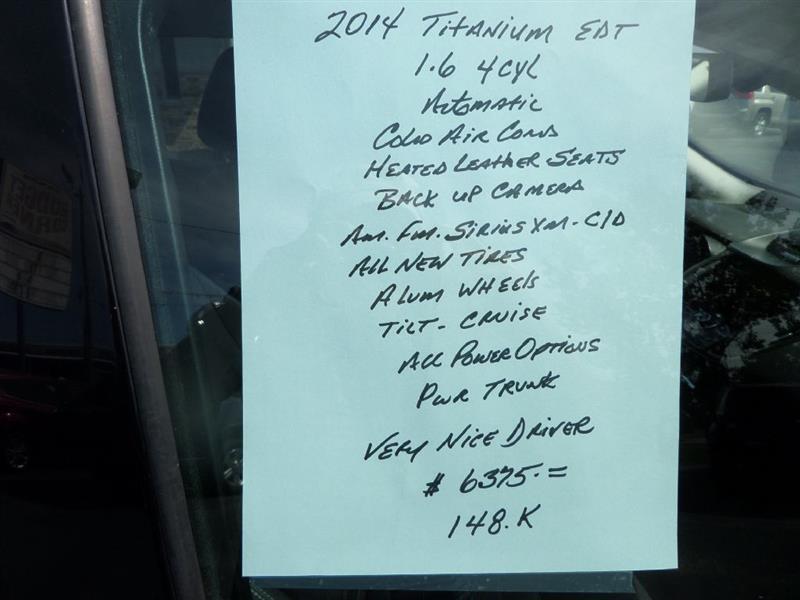 2014 TITANIUM EDT
1.6 4CYL
Automatic
COLD AIR COND
HEATED LEATHER SEATS
BACK UP CAMERA
Am. Fm. SIRIUS XM - C/D
ALL NEW TIRES
ALUM WHEELS
TILT - CRUISE
ALL POWER OPTIONS
PWR TRUNK
VERY NICE DRIVER
$ 6375.=
148.K